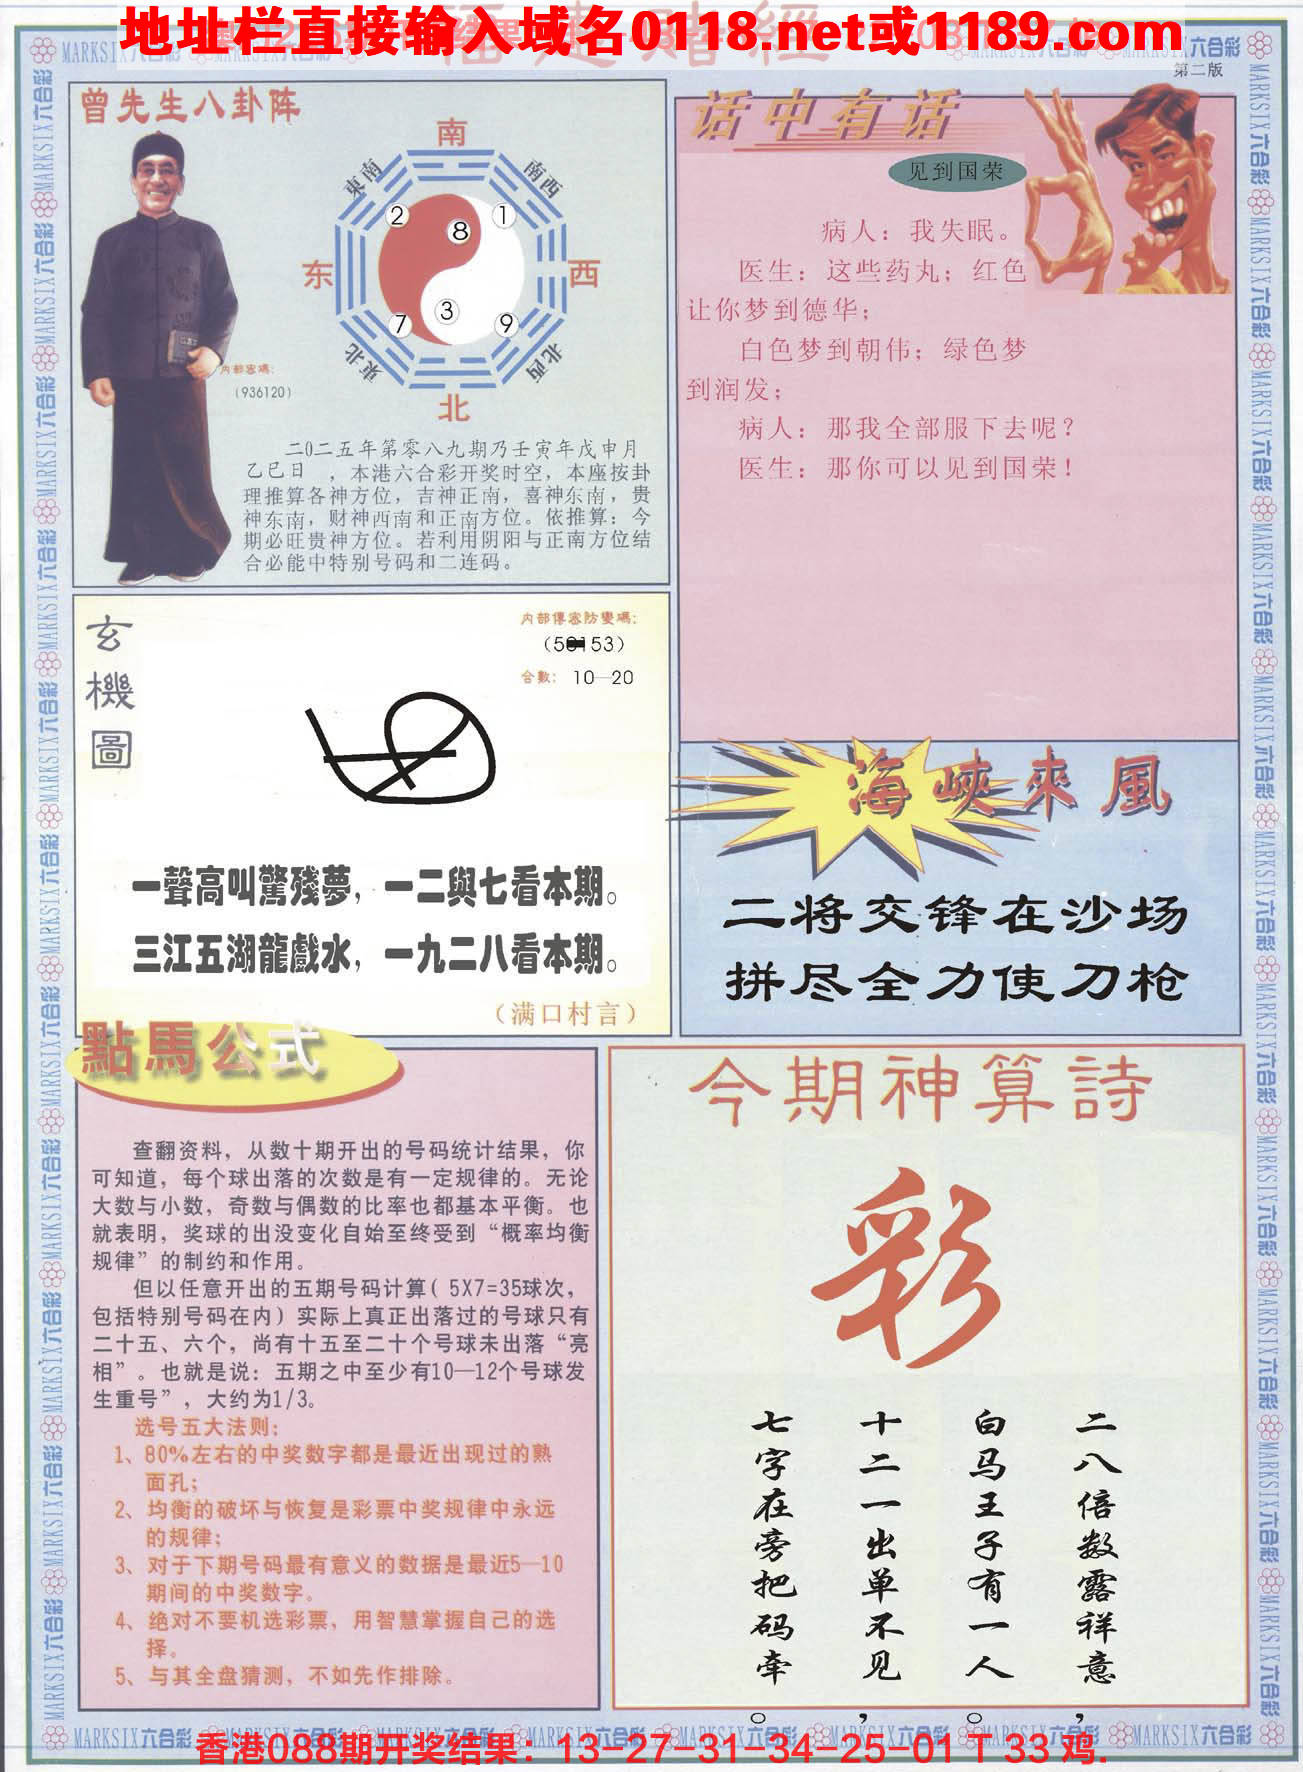 地址栏直接输入域名0118.net或1189.com
福建赌经
第二版
曾先生八卦阵
南
東南
南西
2
1
8
东
西
3
7
9
東北
北西
北
内部密碼：
（936120）
二0二五年第零八九期乃壬寅年戊申月
乙巳日 ，本港六合彩开奖时空，本座按卦
理推算各神方位，吉神正南，喜神东南，贵
神东南，财神西南和正南方位。依推算：今
期必旺贵神方位。若利用阴阳与正南方位结
合必能中特别号码和二连码。
话中有话
见到国荣
病人：我失眠。
医生：这些药丸；红色
让你梦到德华；
白色梦到朝伟；绿色梦
到润发；
病人：那我全部服下去呢？
医生：那你可以见到国荣！
玄機圖
内部傳密防變碼：
合數： 10—20
一聲高叫驚殘夢，一二與七看本期。
三江五湖龍戲水，一九二八看本期。
（满口村言）
海峽來風
二将交锋在沙场
拼尽全力使刀枪
點馬公式
查翻资料，从数十期开出的号码统计结果，你
可知道，每个球出落的次数是有一定规律的。无论
大数与小数，奇数与偶数的比率也都基本平衡。也
就表明，奖球的出没变化自始至终受到“概率均衡
规律”的制约和作用。
但以任意开出的五期号码计算（5X7=35球次，
包括特别号码在内）实际上真正出落过的号球只有
二十五、六个，尚有十五至二十个号球未出落“亮
相”。也就是说：五期之中至少有10—12个号球发
生重号”，大约为1/3。
选号五大法则：
1、80%左右的中奖数字都是最近出现过的熟
面孔；
2、均衡的破坏与恢复是彩票中奖规律中永远
的规律；
3、对于下期号码最有意义的数据是最近5—10
期间的中奖数字。
4、绝对不要机选彩票，用智慧掌握自己的选
择。
5、与其全盘猜测，不如先作排除。
今期神算詩
彩
二八倍数露祥意，
白马王子有一人。
十二一出单不见，
七字在旁把码牵。
MARKSIX六合彩
香港088期开奖结果：13-27-31-34-25-01 T 33 鸡.